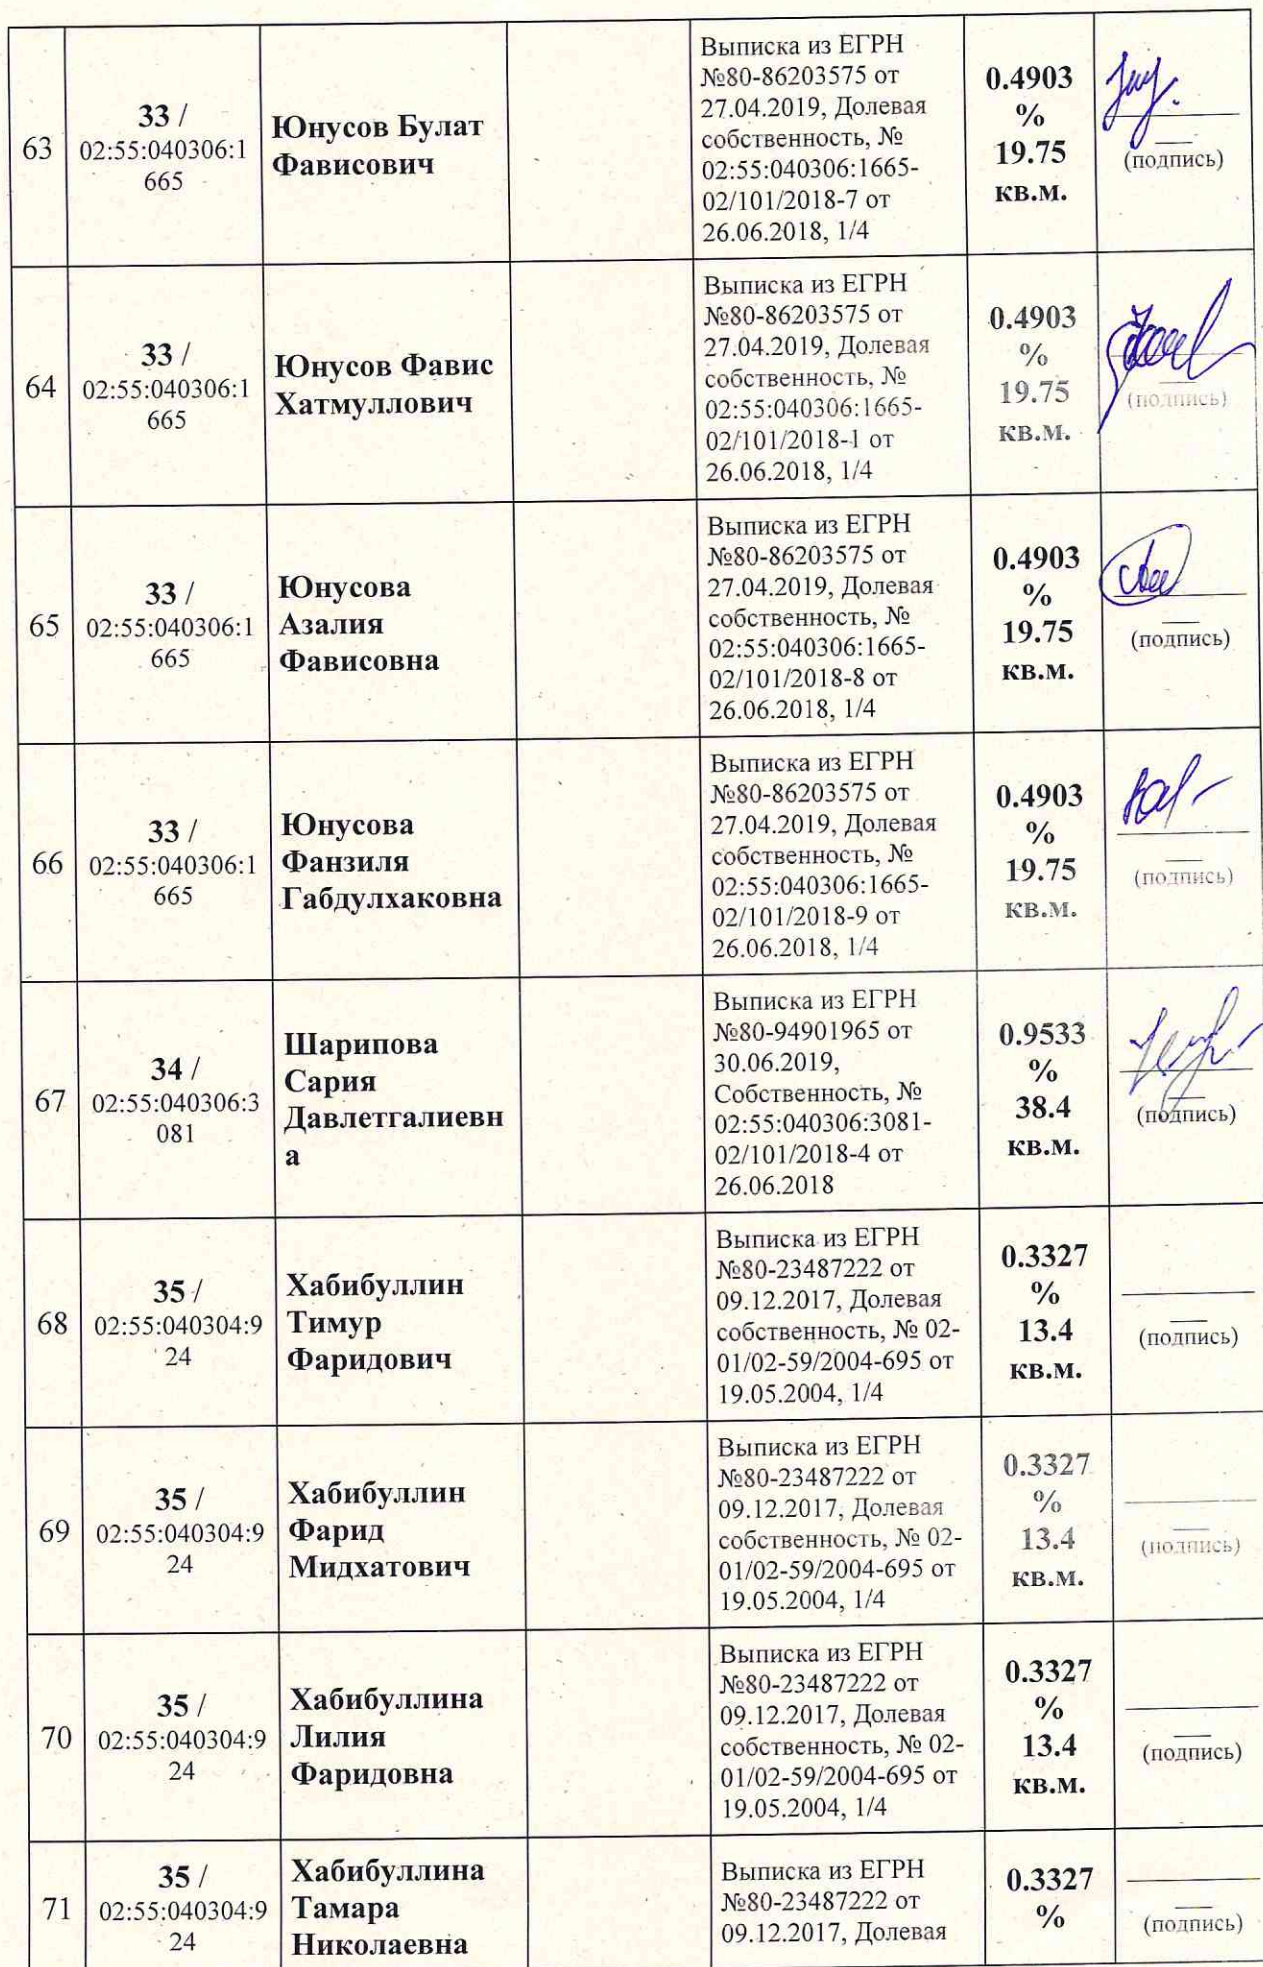 63
33 /
02:55:040306:1
665
Юнусов Булат
Фависович
Выписка из ЕГРН
№80-86203575 от
27.04.2019, Долевая
собственность, №
02:55:040306:1665-
02/101/2018-7 от
26.06.2018, 1/4
0.4903
%
19.75
кв.м.
(подпись)
64
33 /
02:55:040306:1
665
Юнусов Фавис
Хатмуллович
Выписка из ЕГРН
№80-86203575 от
27.04.2019, Долевая
собственность, №
02:55:040306:1665-
02/101/2018-1 от
26.06.2018, 1/4
0.4903
%
19.75
кв.м.
(подпись)
65
33 /
02:55:040306:1
665
Юнусова
Азалия
Фависовна
Выписка из ЕГРН
№80-86203575 от
27.04.2019, Долевая
собственность, №
02:55:040306:1665-
02/101/2018-8 от
26.06.2018, 1/4
0.4903
%
19.75
кв.м.
(подпись)
66
33 /
02:55:040306:1
665
Юнусова
Фанзиля
Габдулхаковна
Выписка из ЕГРН
№80-86203575 от
27.04.2019, Долевая
собственность, №
02:55:040306:1665-
02/101/2018-9 от
26.06.2018, 1/4
0.4903
%
19.75
кв.м.
(подпись)
67
34 /
02:55:040306:3
081
Шарипова
Сария
Давлетгалиевн
а
Выписка из ЕГРН
№80-94901965 от
30.06.2019,
Собственность, №
02:55:040306:3081-
02/101/2018-4 от
26.06.2018
0.9533
%
38.4
кв.м.
(подпись)
68
35 /
02:55:040304:9
24
Хабибуллин
Тимур
Фаридович
Выписка из ЕГРН
№80-23487222 от
09.12.2017, Долевая
собственность, № 02-
01/02-59/2004-695 от
19.05.2004, 1/4
0.3327
%
13.4
кв.м.
(подпись)
69
35 /
02:55:040304:9
24
Хабибуллин
Фарид
Мидхатович
Выписка из ЕГРН
№80-23487222 от
09.12.2017, Долевая
собственность, № 02-
01/02-59/2004-695 от
19.05.2004, 1/4
0.3327
%
13.4
кв.м.
(подпись)
70
35 /
02:55:040304:9
24
Хабибуллина
Лилия
Фаридовна
Выписка из ЕГРН
№80-23487222 от
09.12.2017, Долевая
собственность, № 02-
01/02-59/2004-695 от
19.05.2004, 1/4
0.3327
%
13.4
кв.м.
(подпись)
71
35 /
02:55:040304:9
24
Хабибуллина
Тамара
Николаевна
Выписка из ЕГРН
№80-23487222 от
09.12.2017, Долевая
0.3327
%
(подпись)